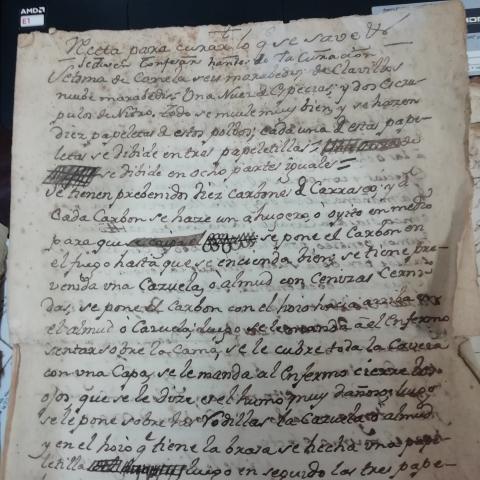 AMD
E1
Receta para curar lo q se save
se deven Confesar hantes de la Curación
Setima de Canela seis marabedis: de Clavillos
nuebe marabedis: Una Nuez d Especias: y dos Escru-
pulos de Nitro, todo se muele muy bien, y se hazen
diez papeletas d estos polvos; cada una d estas pape-
letas se dibide en tres papeletillas =
se dibide en ocho partes iguales =
se tienen prebenido diez carbones d Carrasco, y a
Cada Carbon se haze un ahugero, ò oyito en medio
para que se pone el Carbon en
el fuego hasta que se encienda bien, se tiene pre-
venida vna Cazuela, ò almud con Cenizas Cerni-
das, se pone el Carbon con el hoio hacia arriba en
el almud ò Cazuela, luego se le manda à el Enfermo
sentar sobre la Cama, se le cubre toda la Caveza
con vna Capa, se le manda al Enfermo cierre los
ojos que se le dize es el humo muy dañoso; luego
se le pone sobre las Rodillas la Cazuela ò almud
y en el hoio q tiene la brasa se hecha vna pape-
letilla luego en seguido las tres pape-